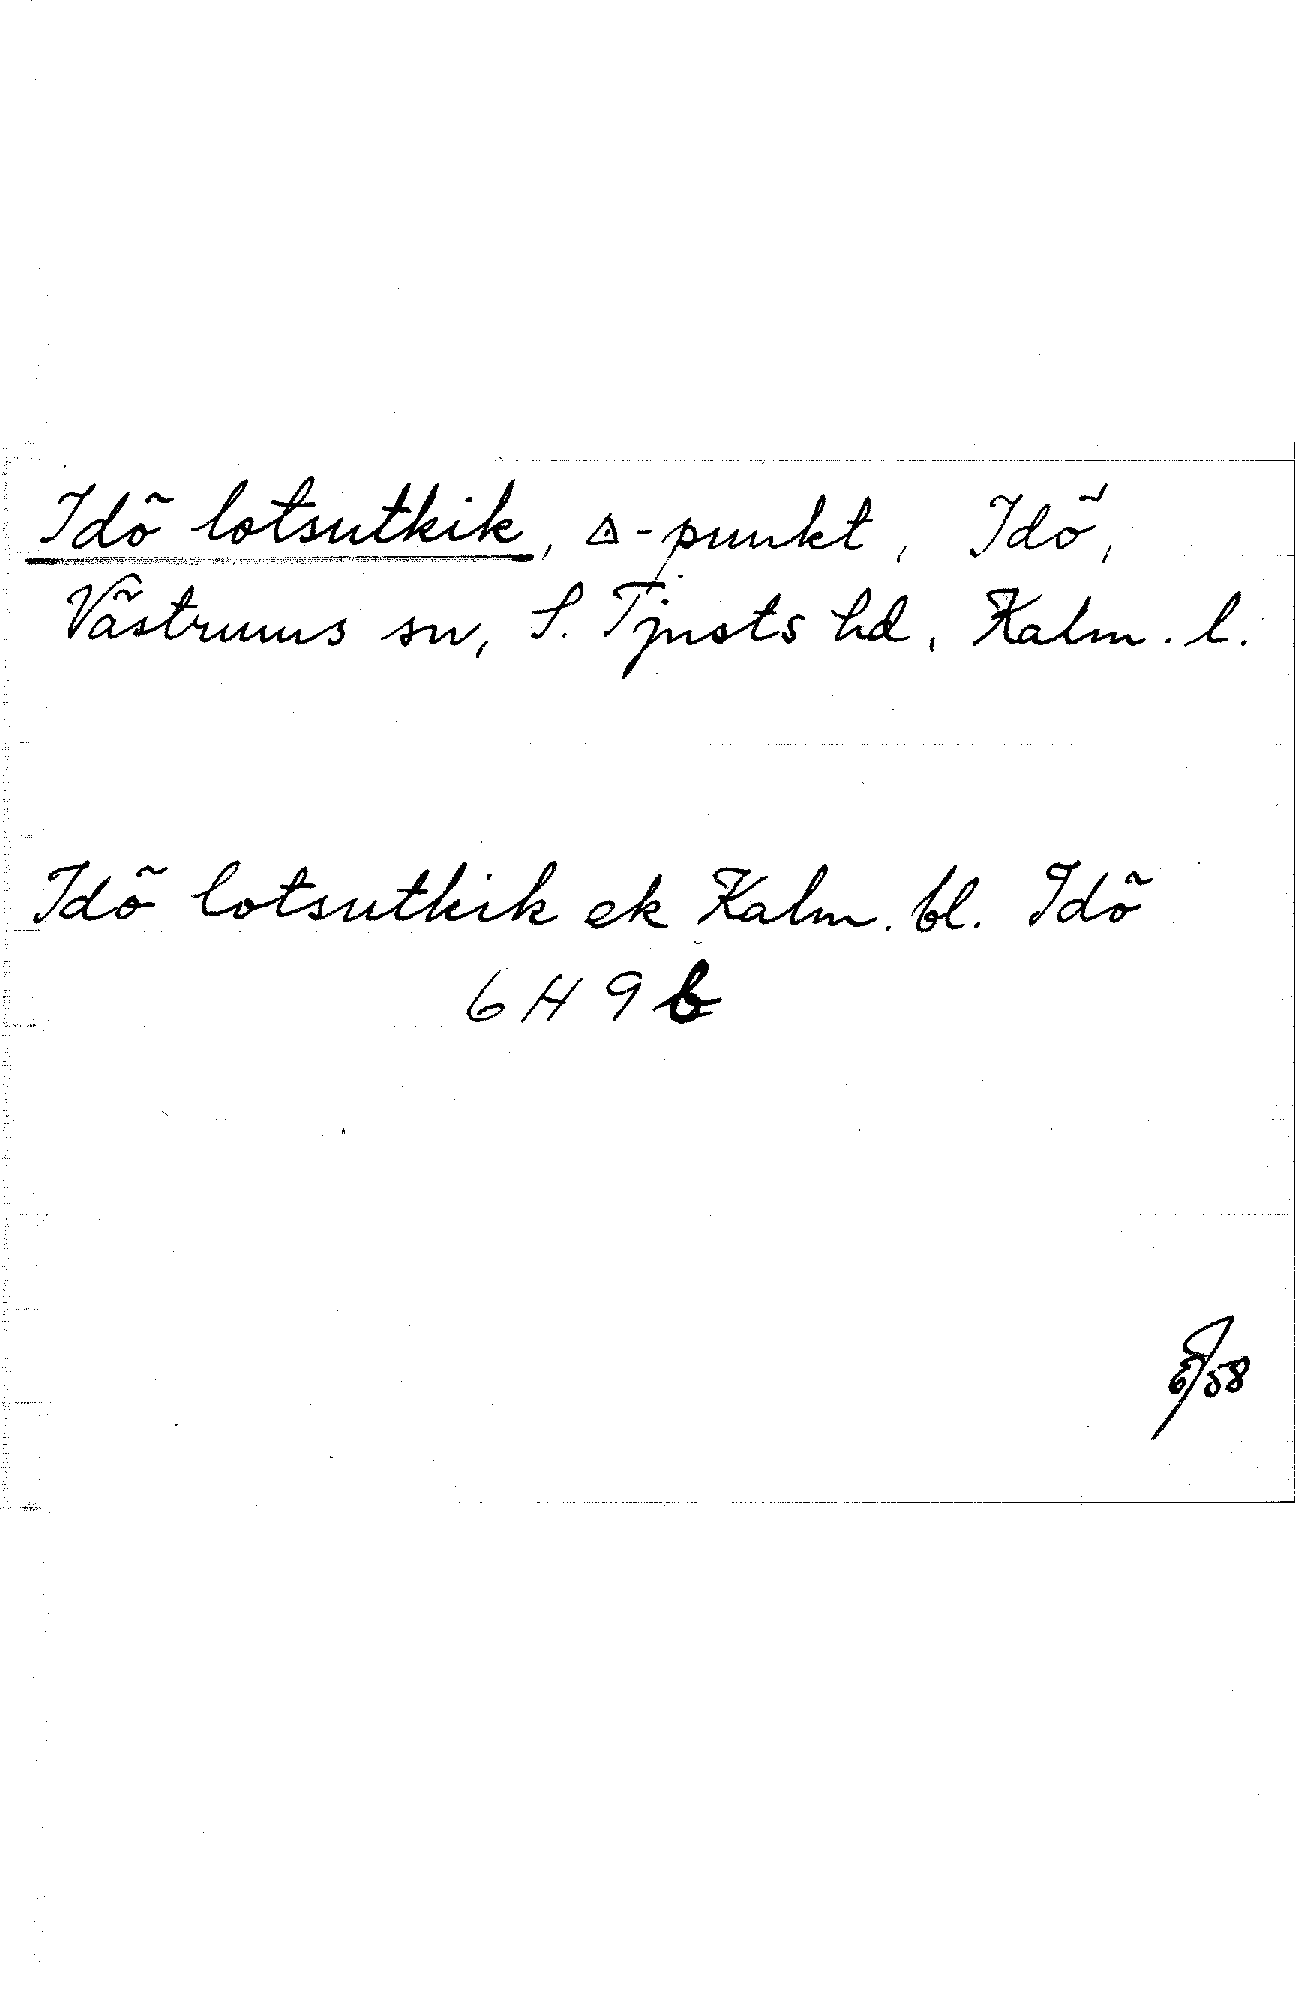 Idö lotsutkik, △-punkt, Idö,
Västrums sn, S. Tjusts hd, Kalm. l.
Idö lotsutkik ek Kalm. bl. Idö
6 H 9 b
6/58